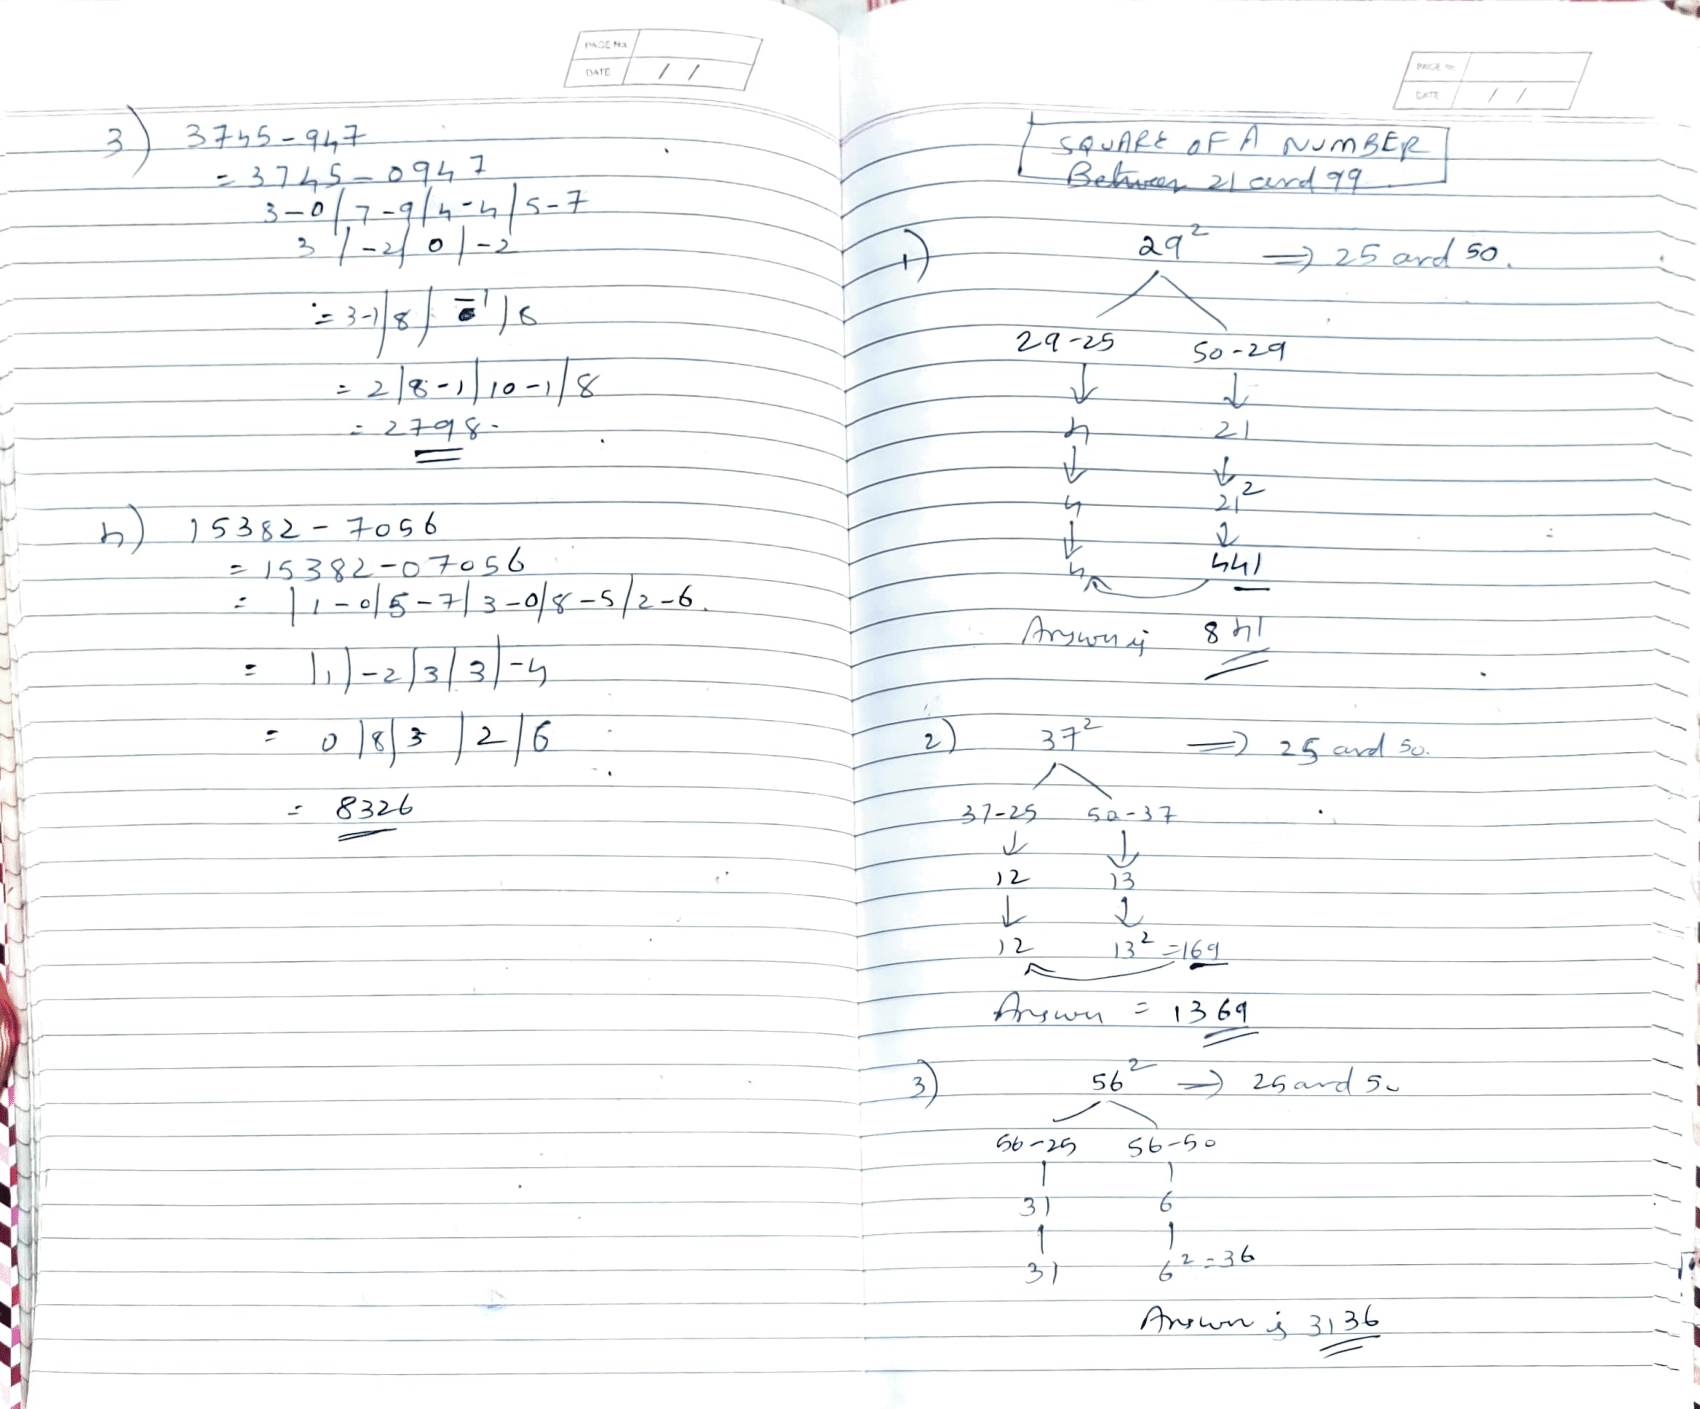 PAGE No.
DATE / /
3) 3745-947
= 3745-0947
3-0/7-9/4-4/5-7
3/-2/0/-2
= 3-1/8/ /8
= 2/8-1/10-1/8
= 2798
4) 15382 - 7056
= 15382-07056
= |1-0/5-7/3-0/8-5/2-6
= |1|-2/3/3/-4
= 0/8/3/2/6
= 8326
PAGE No.
DATE / /
SQUARE OF A NUMBER
Between 21 and 99
1) 29² ⇒ 25 and 50.
29-25 50-29
↓ ↓
4 21
↓ ↓
4 21²
↓ ↓
4 441
Answer is 841
2) 37² ⇒ 25 and 50.
37-25 50-37
↓ ↓
12 13
↓ ↓
12 13² =169
Answer = 1369
3) 56² ⇒ 25 and 50
56-25 56-50
31 6
31 6² = 36
Answer is 3136